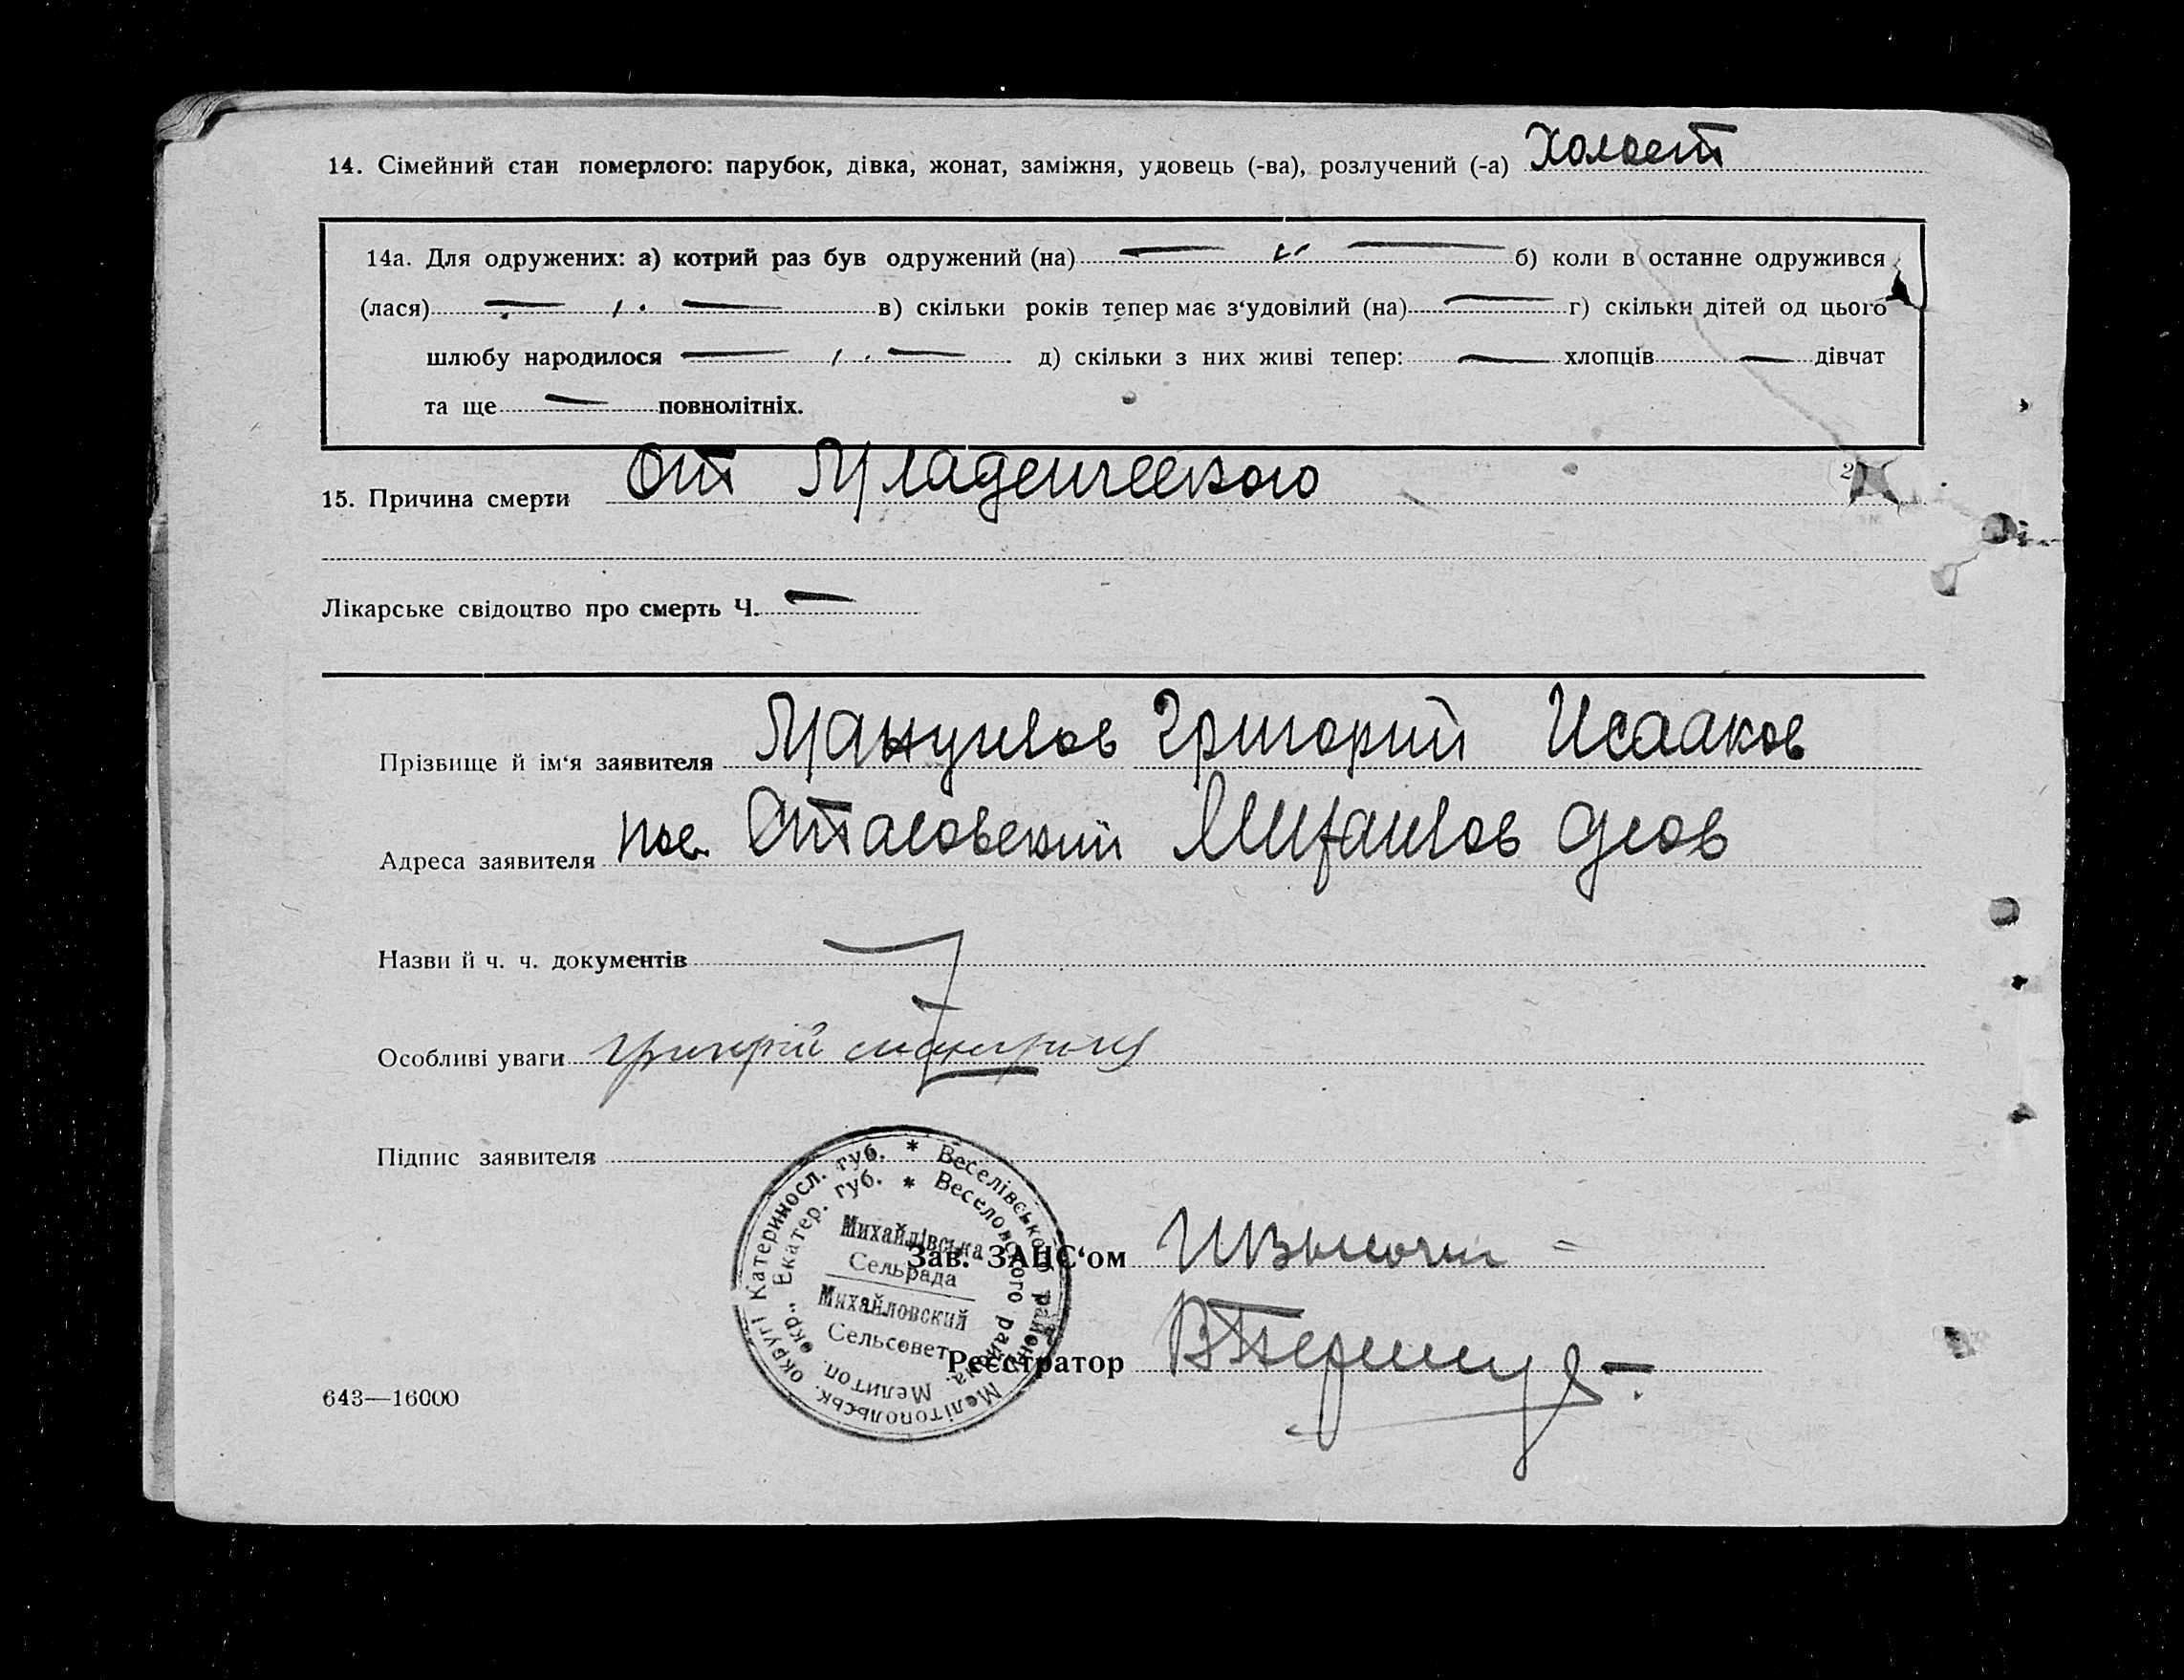 14. Сімейний стан померлого: парубок, дівка, жонат, заміжня, удовець (-ва), розлучений (-а) Холост
14а. Для одружених: а) котрий раз був одружений (на) — „ — б) коли в останне одружився
(лася) — „ — в) скільки років тепер має з‘удовілий (на) — г) скільки дітей од цього
шлюбу народилося — „ — д) скільки з них живі тепер: — хлопців — дівчат
та ще — повнолітніх.
15. Причина смерти От Младенческого
Лікарське свідоцтво про смерть Ч. —
Прізвище й ім‘я заявителя Мануилов Григорий Исааков
Адреса заявителя пос. Стасовский Михаилов
Назви й ч. ч. документів
Особливі уваги Григорій
Підпис заявителя
Катериносл. губ. * Веселівського району Мелітопольськ. округі
Екатер. губ. * Веселовского района. Мелитоп. окр.
Михайлівська
Сельрада
Михайловский
Сельсовет
Зав. ЗАЦС‘ом
Реєстратор
643—16000